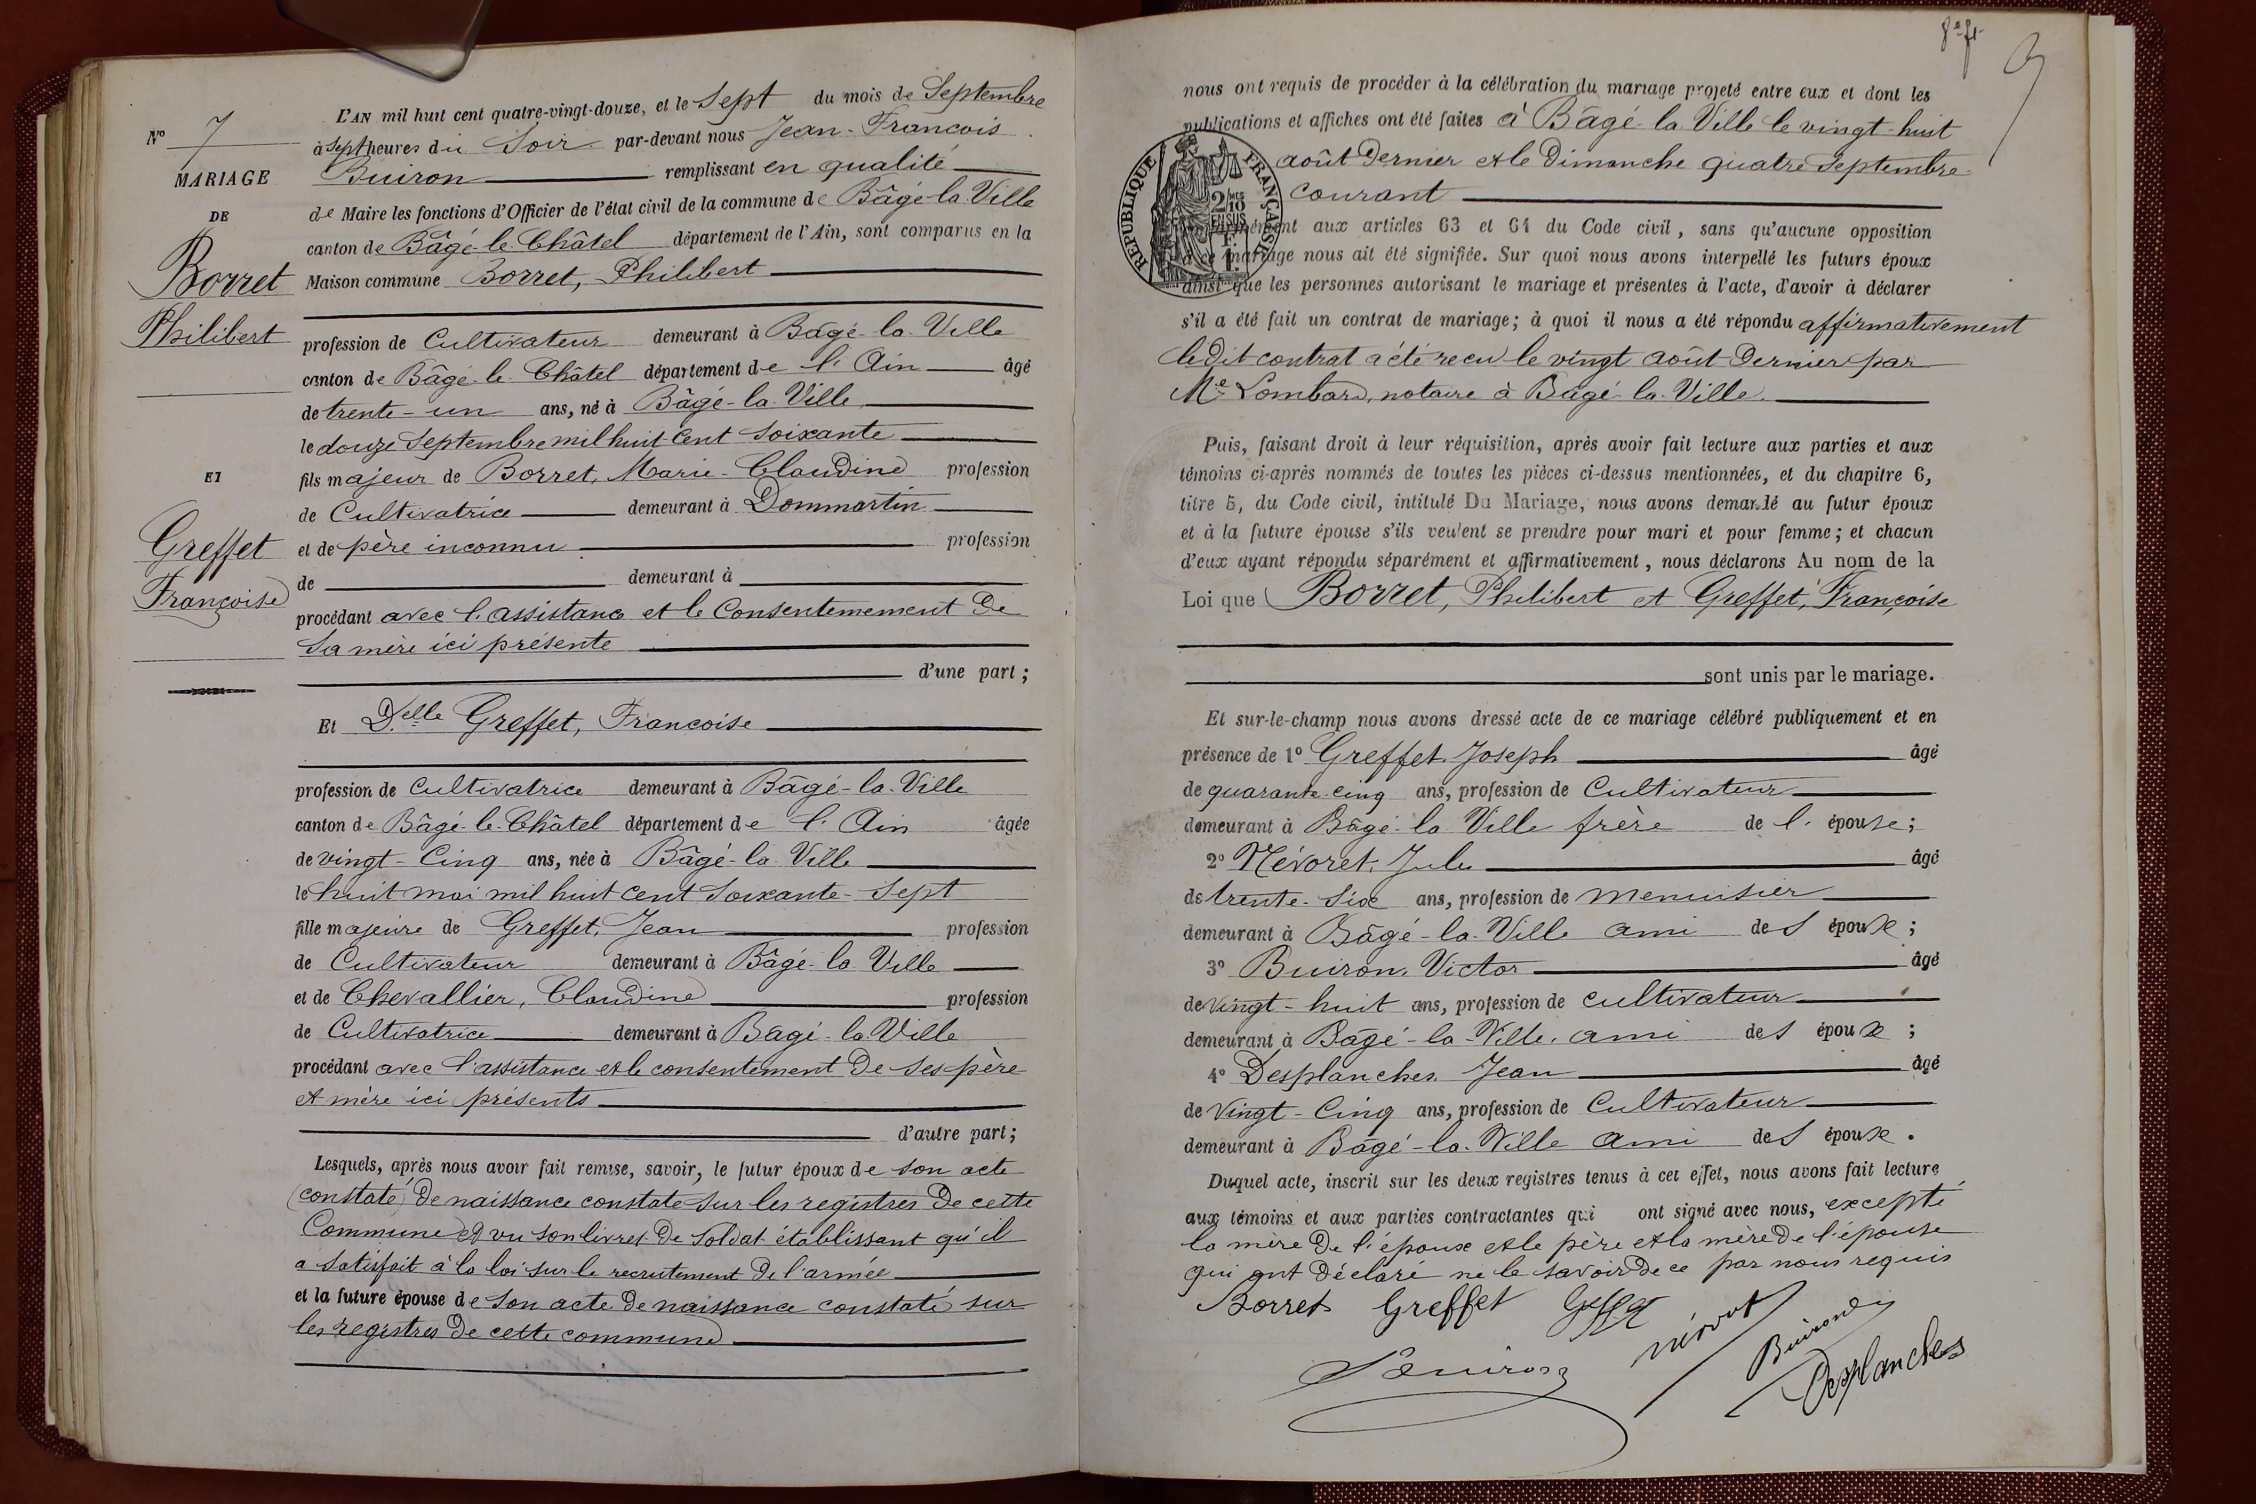 N° 7
MARIAGE
DE
Borret
Philibert
ET
Greffet
Françoise
L'AN mil huit cent quatre-vingt-douze, et le Sept du mois de Septembre
à sept heures du Soir par-devant nous Jean-François
Buiron remplissant en qualité
de Maire les fonctions d'Officier de l'état civil de la commune de Bâgé-la-Ville
canton de Bâgé-le-Châtel département de l'Ain, sont comparus en la
Maison commune Borret, Philibert
profession de Cultivateur demeurant à Bâgé-la-Ville
canton de Bâgé-le-Châtel département de l'Ain âgé
de trente-un ans, né à Bâgé-la-Ville
le douze Septembre mil huit cent soixante
fils majeur de Borret, Marie-Claudine profession
de Cultivatrice demeurant à Dommartin
et de père inconnu profession
de demeurant à
procédant avec l'assistance et le Consentemement de
Sa mère ici présente
d'une part ;
Et Delle Greffet, Françoise
profession de Cultivatrice demeurant à Bâgé-la-Ville
canton de Bâgé-le-Châtel département de l'Ain âgée
de vingt-Cinq ans, née à Bâgé-la-Ville
le huit mai mil huit cent Soixante-Sept
fille majeure de Greffet, Jean profession
de Cultivateur demeurant à Bâgé-la-Ville
et de Chevallier, Claudine profession
de Cultivatrice demeurant à Bâgé-la-Ville
procédant avec l'assistance et le consentement de ses père
et mère ici présents
d'autre part ;
Lesquels, après nous avoir fait remise, savoir, le futur époux de son acte
(constaté) de naissance constaté sur les registres de cette
Commune et vu son livret de Soldat établissant qu'il
a satisfait à la loi sur le recrutement de l'armée
et la future épouse de son acte de naissance constaté sur
les registres de cette commune
8e ft
nous ont requis de procéder à la célébration du mariage projeté entre eux et dont les
publications et affiches ont été faites à Bâgé-la-Ville le vingt-huit
août dernier et le Dimanche quatre Septembre
courant
RÉPUBLIQUE FRANÇAISE
2/10 EN SUS
1 F.
aux articles 63 et 64 du Code civil, sans qu'aucune opposition
à ce mariage nous ait été signifiée. Sur quoi nous avons interpellé les futurs époux
ainsi que les personnes autorisant le mariage et présentes à l'acte, d'avoir à déclarer
s'il a été fait un contrat de mariage ; à quoi il nous a été répondu affirmativement
le dit contrat a été recu le vingt août dernier par
Me Lombard, notaire à Bâgé-la-Ville.
Puis, faisant droit à leur réquisition, après avoir fait lecture aux parties et aux
témoins ci-après nommés de toutes les pièces ci-dessus mentionnées, et du chapitre 6,
titre 5, du Code civil, intitulé Du Mariage, nous avons demandé au futur époux
et à la future épouse s'ils veulent se prendre pour mari et pour femme ; et chacun
d'eux ayant répondu séparément et affirmativement, nous déclarons Au nom de la
Loi que Borret, Philibert et Greffet, Françoise
sont unis par le mariage.
Et sur-le-champ nous avons dressé acte de ce mariage célébré publiquement et en
présence de 1° Greffet Joseph âgé
de quarante-cinq ans, profession de Cultivateur
demeurant à Bâgé-la-Ville frère de l'épouse ;
2° Névoret, Jules âgé
de trente-Six ans, profession de menuisier
demeurant à Bâgé-la-Ville ami des époux ;
3° Buiron, Victor âgé
de vingt-huit ans, profession de cultivateur
demeurant à Bâgé-la-Ville, ami des époux ;
4° Desplanches, Jean âgé
de Vingt-Cinq ans, profession de Cultivateur
demeurant à Bâgé-la-Ville ami des époux.
Duquel acte, inscrit sur les deux registres tenus à cet effet, nous avons fait lecture
aux témoins et aux parties contractantes qui ont signé avec nous, excepté
la mère de l'époux et le père et la mère de l'épouse
qui ont déclaré ne le savoir de ce par nous requis
Borret Greffet Greffet
Buiron Buiron
Desplanches